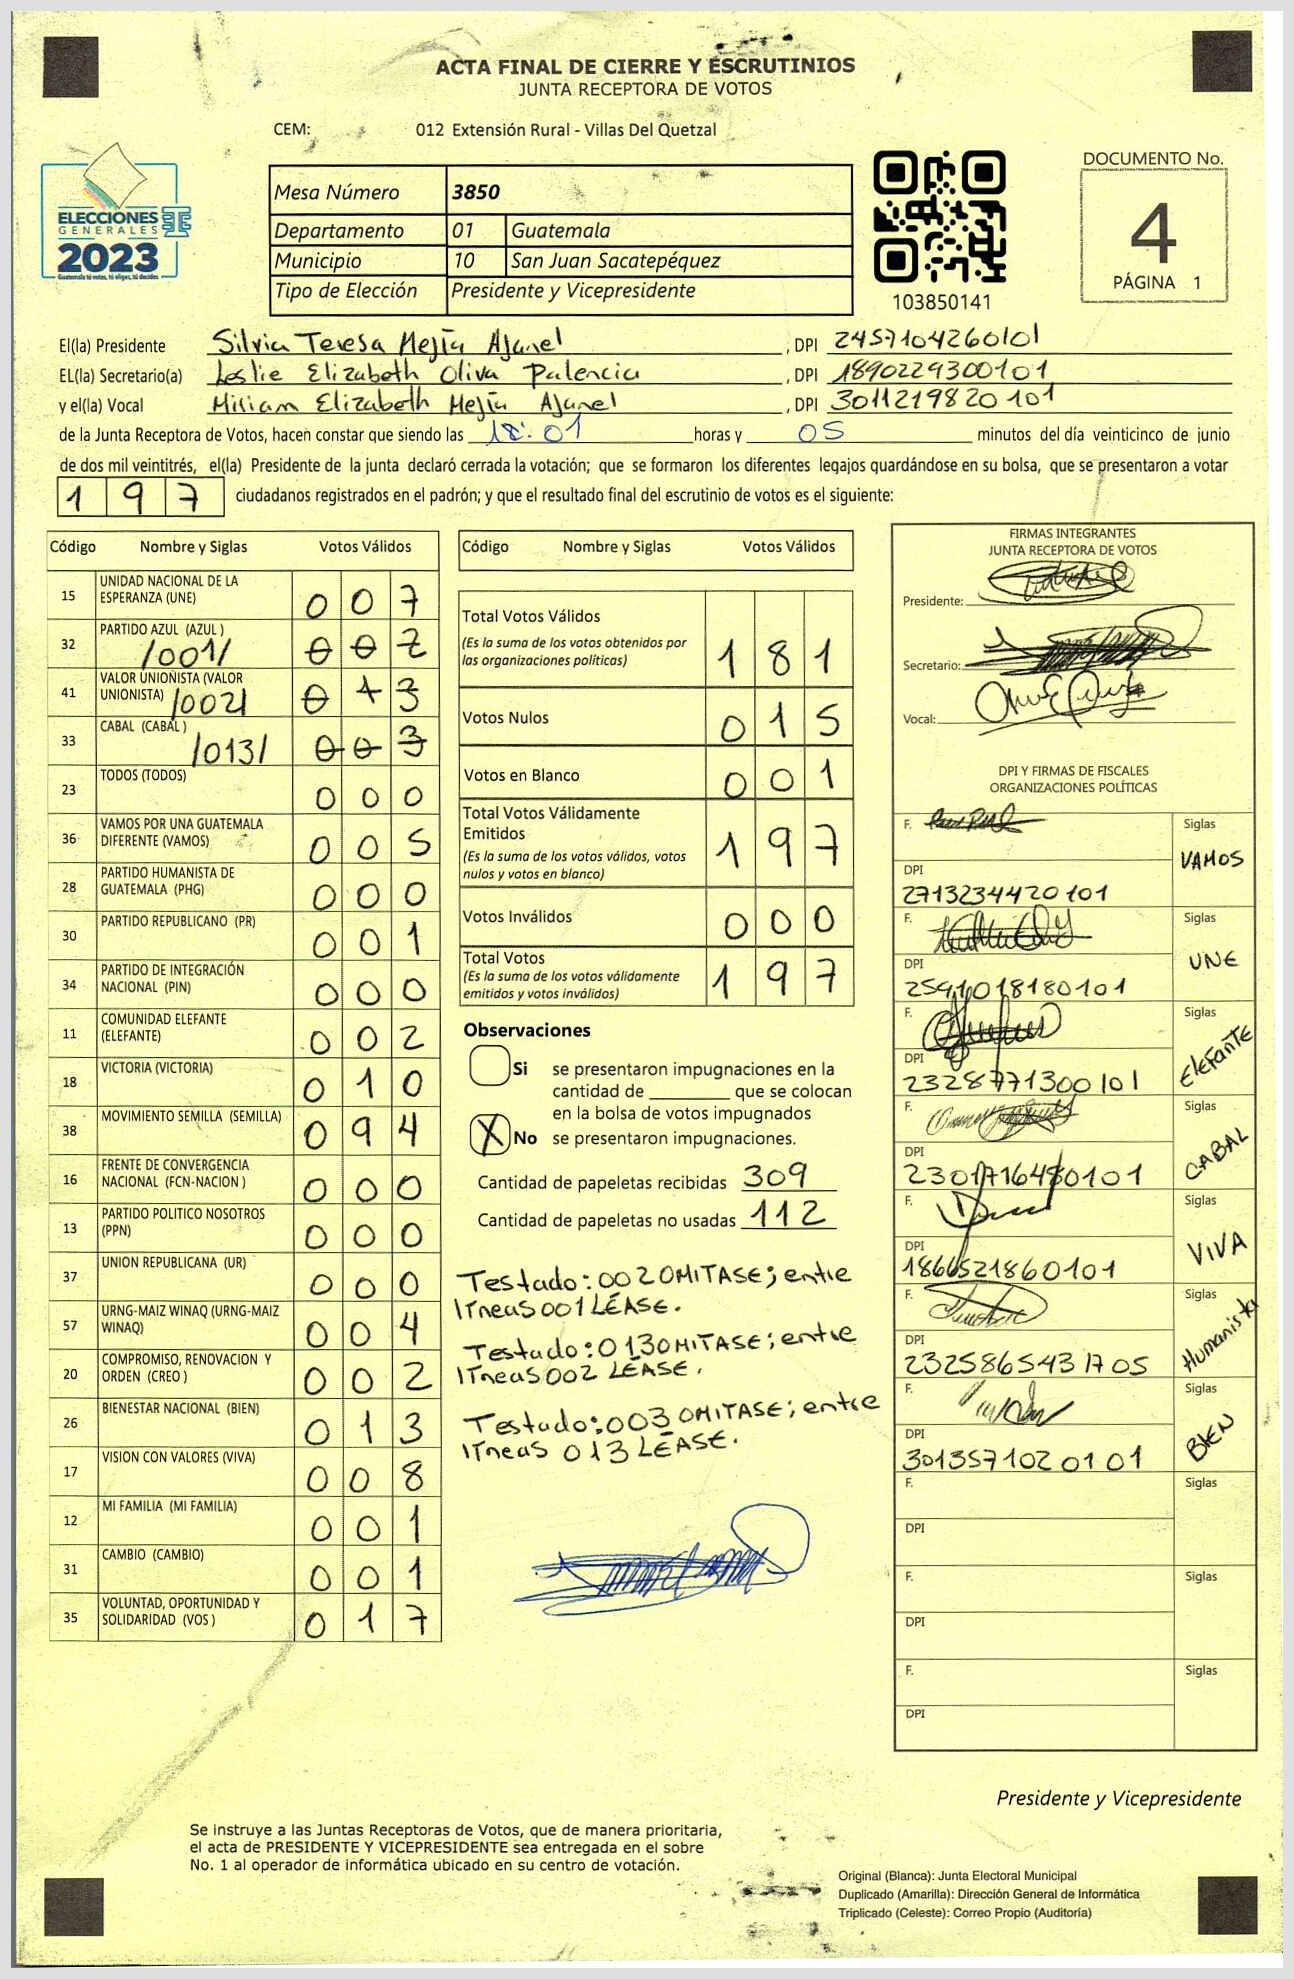 ACTA FINAL DE CIERRE Y ESCRUTINIOS
JUNTA RECEPTORA DE VOTOS
CEM: 012 Extensión Rural - Villas Del Quetzal
ELECCIONES
GENERALES
2023
Guatemala tú votas, tú eliges, tú decides
Mesa Número 3850
Departamento 01 Guatemala
Municipio 10 San Juan Sacatepéquez
Tipo de Elección Presidente y Vicepresidente
103850141
DOCUMENTO No.
4
PÁGINA 1
El(la) Presidente Silvia Teresa Mejía Ajanel, DPI 2457104260101
EL(la) Secretario(a) Leslie Elizabeth Oliva Palencia, DPI 1890229300101
y el(la) Vocal Miriam Elizabeth Mejía Ajanel, DPI 3011219820101
de la Junta Receptora de Votos, hacen constar que siendo las 18:01 horas y 05 minutos del día veinticinco de junio
de dos mil veintitrés, el(la) Presidente de la junta declaró cerrada la votación; que se formaron los diferentes legajos guardándose en su bolsa, que se presentaron a votar
197 ciudadanos registrados en el padrón; y que el resultado final del escrutinio de votos es el siguiente:
Código Nombre y Siglas Votos Válidos
15 UNIDAD NACIONAL DE LA ESPERANZA (UNE) 007
32 PARTIDO AZUL (AZUL ) /001/ 002
41 VALOR UNIONISTA (VALOR UNIONISTA) /002/ 013
33 CABAL (CABAL ) /013/ 003
23 TODOS (TODOS) 000
36 VAMOS POR UNA GUATEMALA DIFERENTE (VAMOS) 005
28 PARTIDO HUMANISTA DE GUATEMALA (PHG) 000
30 PARTIDO REPUBLICANO (PR) 001
34 PARTIDO DE INTEGRACIÓN NACIONAL (PIN) 000
11 COMUNIDAD ELEFANTE (ELEFANTE) 002
18 VICTORIA (VICTORIA) 010
38 MOVIMIENTO SEMILLA (SEMILLA) 094
16 FRENTE DE CONVERGENCIA NACIONAL (FCN-NACION ) 000
13 PARTIDO POLITICO NOSOTROS (PPN) 000
37 UNION REPUBLICANA (UR) 000
57 URNG-MAIZ WINAQ (URNG-MAIZ WINAQ) 004
20 COMPROMISO, RENOVACION Y ORDEN (CREO ) 002
26 BIENESTAR NACIONAL (BIEN) 013
17 VISION CON VALORES (VIVA) 008
12 MI FAMILIA (MI FAMILIA) 001
31 CAMBIO (CAMBIO) 001
35 VOLUNTAD, OPORTUNIDAD Y SOLIDARIDAD (VOS ) 017
Código Nombre y Siglas Votos Válidos
Total Votos Válidos 181
(Es la suma de los votos obtenidos por
las organizaciones políticas)
Votos Nulos 015
Votos en Blanco 001
Total Votos Válidamente
Emitidos 197
(Es la suma de los votos válidos, votos
nulos y votos en blanco)
Votos Inválidos 000
Total Votos 197
(Es la suma de los votos válidamente
emitidos y votos inválidos)
Observaciones
Si se presentaron impugnaciones en la
cantidad de ________ que se colocan
en la bolsa de votos impugnados
X No se presentaron impugnaciones.
Cantidad de papeletas recibidas 309
Cantidad de papeletas no usadas 112
Testado: 002 OMITASE; entre
líneas 001 LÉASE.
Testado: 013 OMITASE; entre
líneas 002 LÉASE.
Testado: 003 OMITASE; entre
líneas 013 LÉASE.
FIRMAS INTEGRANTES
JUNTA RECEPTORA DE VOTOS
Presidente:
Secretario:
Vocal:
DPI Y FIRMAS DE FISCALES
ORGANIZACIONES POLÍTICAS
F. Siglas
VAMOS
DPI
2713234420101
F. Siglas
UNE
DPI
2541018180101
F. Siglas
Elefante
DPI
2328771300101
F. Siglas
CABAL
DPI
2301716480101
F. Siglas
VIVA
DPI
1866521860101
F. Siglas
Humanista
DPI
2325865431705
F. Siglas
BIEN
DPI
3013571020101
F. Siglas
DPI
F. Siglas
DPI
F. Siglas
DPI
Presidente y Vicepresidente
Se instruye a las Juntas Receptoras de Votos, que de manera prioritaria,
el acta de PRESIDENTE Y VICEPRESIDENTE sea entregada en el sobre
No. 1 al operador de informática ubicado en su centro de votación.
Original (Blanca): Junta Electoral Municipal
Duplicado (Amarilla): Dirección General de Informática
Triplicado (Celeste): Correo Propio (Auditoría)